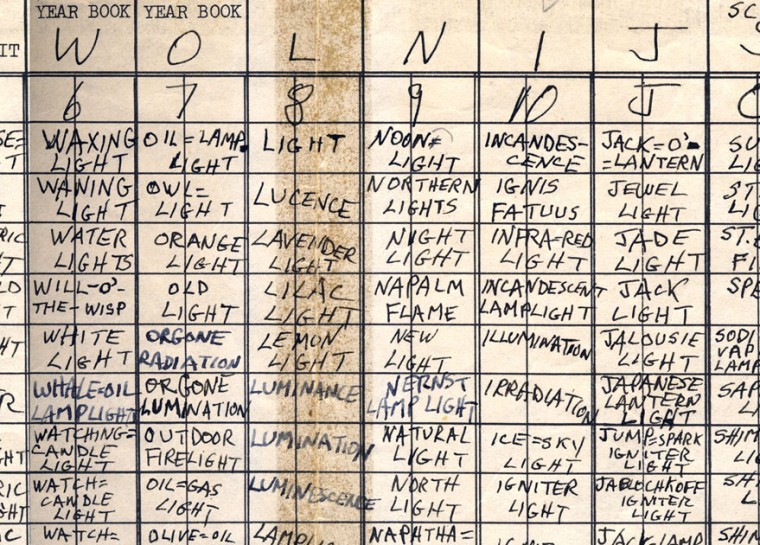 YEAR BOOK
YEAR BOOK
W
O
L
N
I
J
6
7
8
9
10
J
WAXING
LIGHT
OIL=LAMP
LIGHT
LIGHT
NOON=
LIGHT
INCANDES-
CENCE
JACK=O'-
=LANTERN
WANING
LIGHT
OWL=
LIGHT
LUCENCE
NORTHERN
LIGHTS
IGNIS
FATUUS
JEWEL
LIGHT
WATER
LIGHTS
ORANGE
LIGHT
LAVENDER
LIGHT
NIGHT
LIGHT
INFRA=RED
LIGHT
JADE
LIGHT
WILL-O'-
THE-WISP
OLD
LIGHT
LILAC
LIGHT
NAPALM
FLAME
INCANDESCENT
LAMPLIGHT
JACK
LIGHT
WHITE
LIGHT
ORGONE
RADIATION
LEMON
LIGHT
NEW
LIGHT
ILLUMINATION
JALOUSIE
LIGHT
WHALE=OIL
LAMPLIGHT
ORGONE
LUMINATION
LUMINANCE
NERNST
LAMP LIGHT
IRRADIATION
JAPANESE
LANTERN
LIGHT
WATCHING=
CANDLE
LIGHT
OUTDOOR
FIRELIGHT
LUMINATION
NATURAL
LIGHT
ICE=SKY
LIGHT
JUMP=SPARK
IGNITER
LIGHT
WATCH=
CANDLE
LIGHT
OIL=GAS
LIGHT
LUMINESCENCE
NORTH
LIGHT
IGNITER
LIGHT
JABLOCHKOFF
IGNITER
LIGHT
WATCH=
OLIVE=OIL
NAPHTHA=